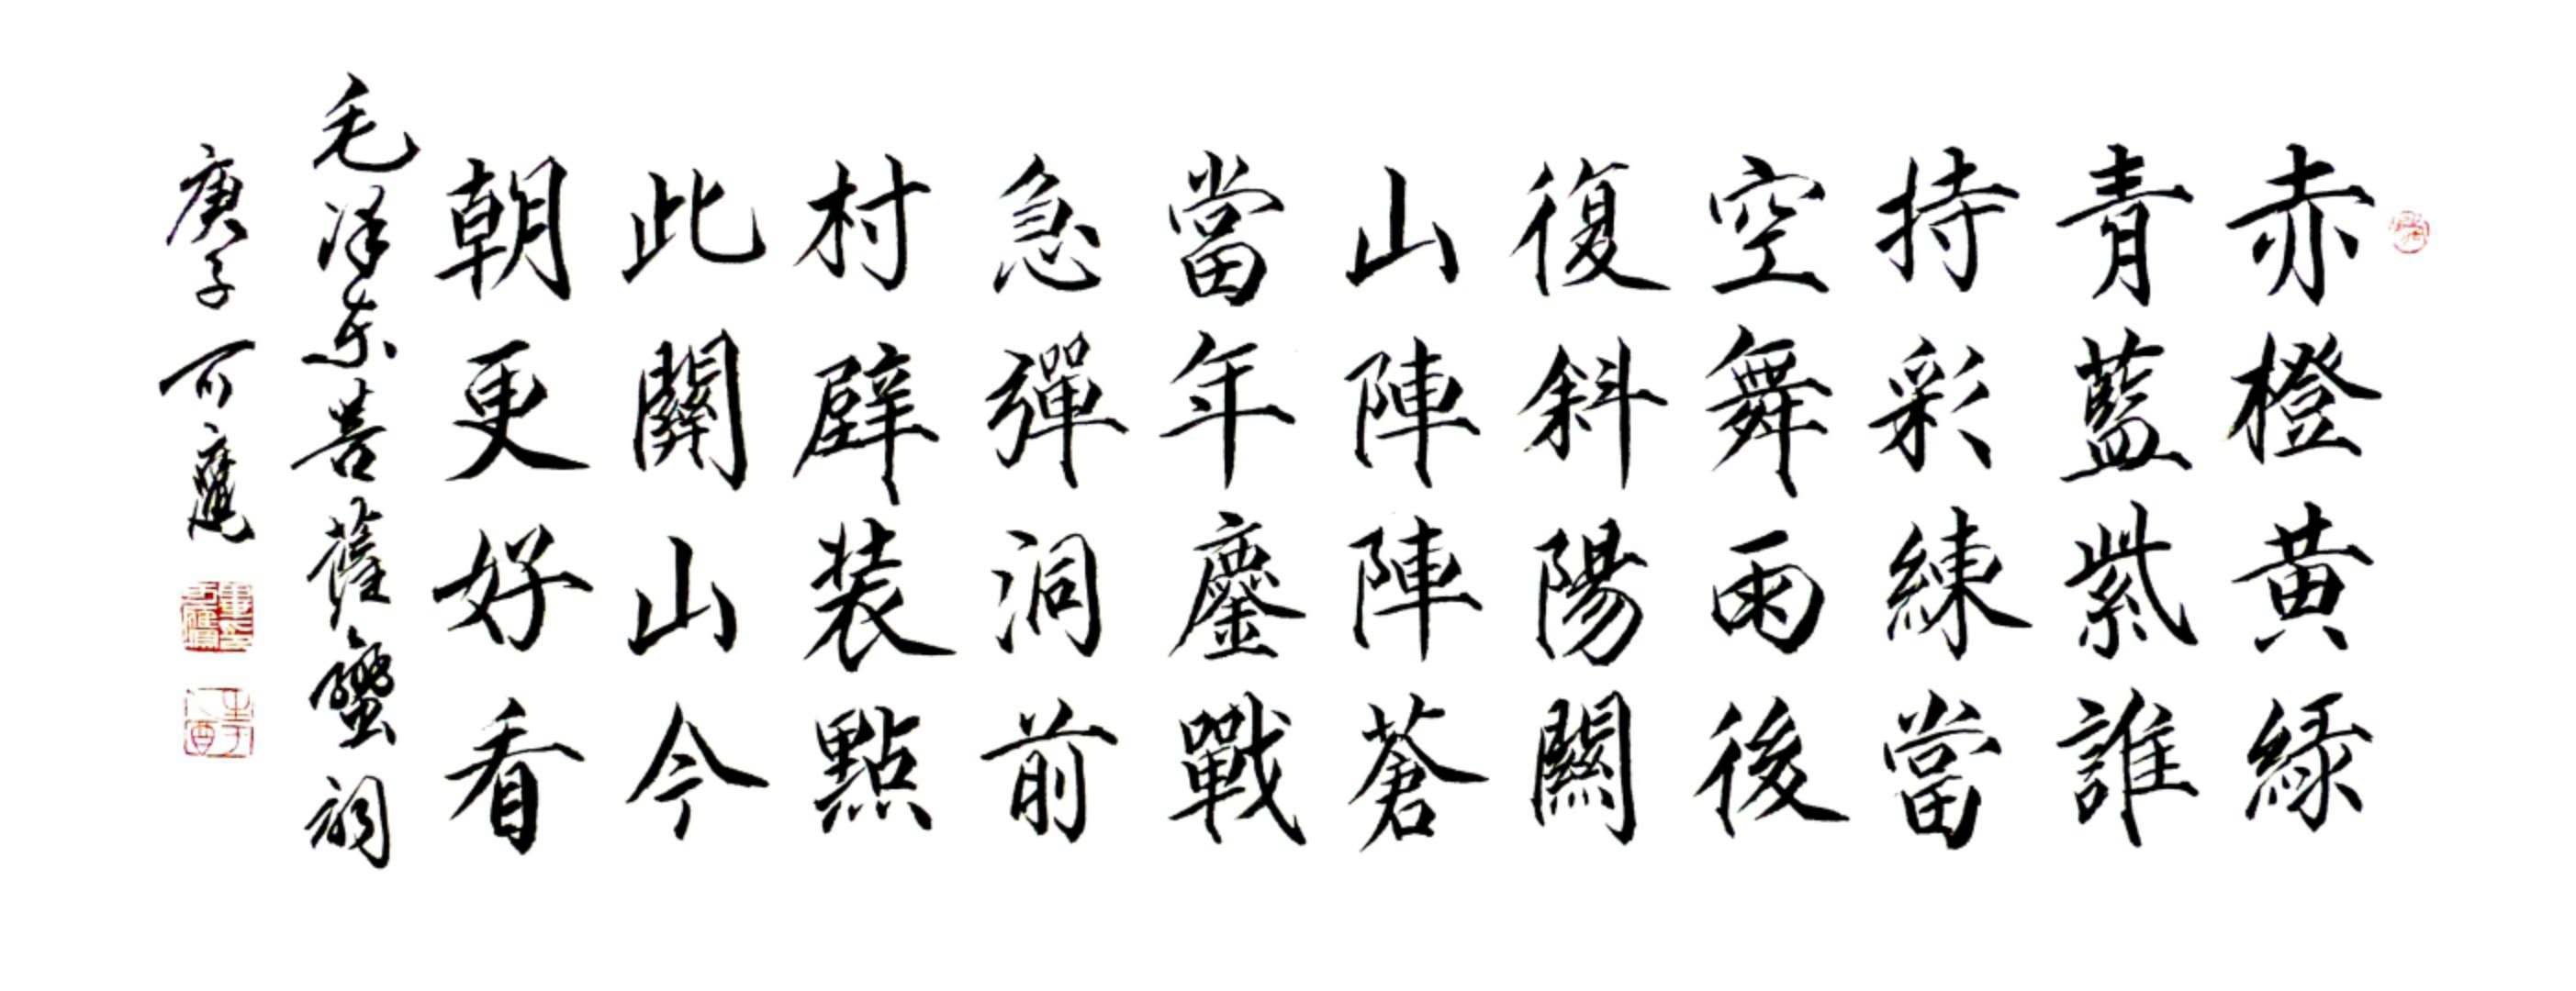 赤橙黄緑
青藍紫誰
持彩練當
空舞雨後
復斜陽關
山陣陣蒼
當年鏖戰
急彈洞前
村壁装點
此關山今
朝更好看
毛泽东菩薩蠻詞
庚子可鷹